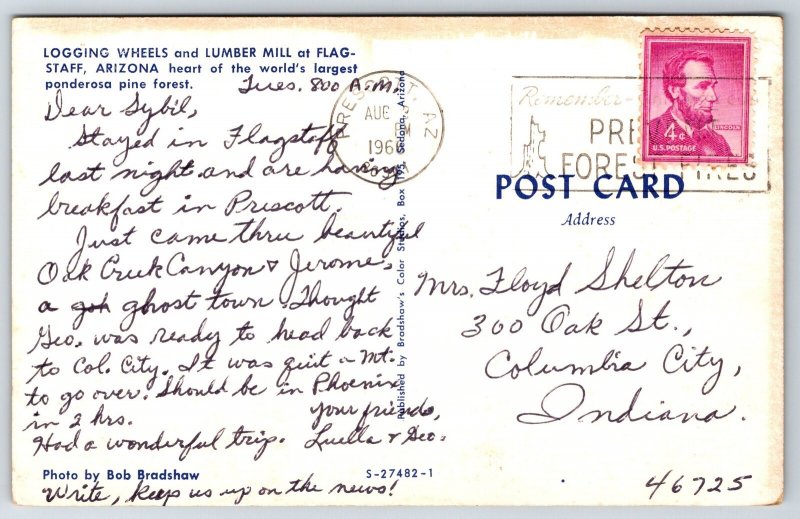 LOGGING WHEELS and LUMBER MILL at FLAG-
STAFF, ARIZONA heart of the world's largest
ponderosa pine forest.
Tues. 8:00 A.M.
Dear Sybil,
Stayed in Flagstaff
last night and are having
breakfast in Prescott.
Just came thru beautiful
Oak Creek Canyon & Jerome,
a ghost town. Thought
Geo. was ready to head back
to Col. City. It was quit a Mt.
to go over. Should be in Phoenix
in 2 hrs.
Your friends,
Had a wonderful trip. Luella & Geo.
Photo by Bob Bradshaw
S-27482-1
Write, keep us up on the news!
Published by Bradshaw's Color Studios, Box 195, Sedona, Arizona
PRESCOTT, AZ
AUG
PM
196
Remember-
PRE
FOREST FIRES
4¢
LINCOLN
U.S. POSTAGE
POST CARD
Address
Mrs. Floyd Shelton
300 Oak St.,
Columbia City,
Indiana.
46725